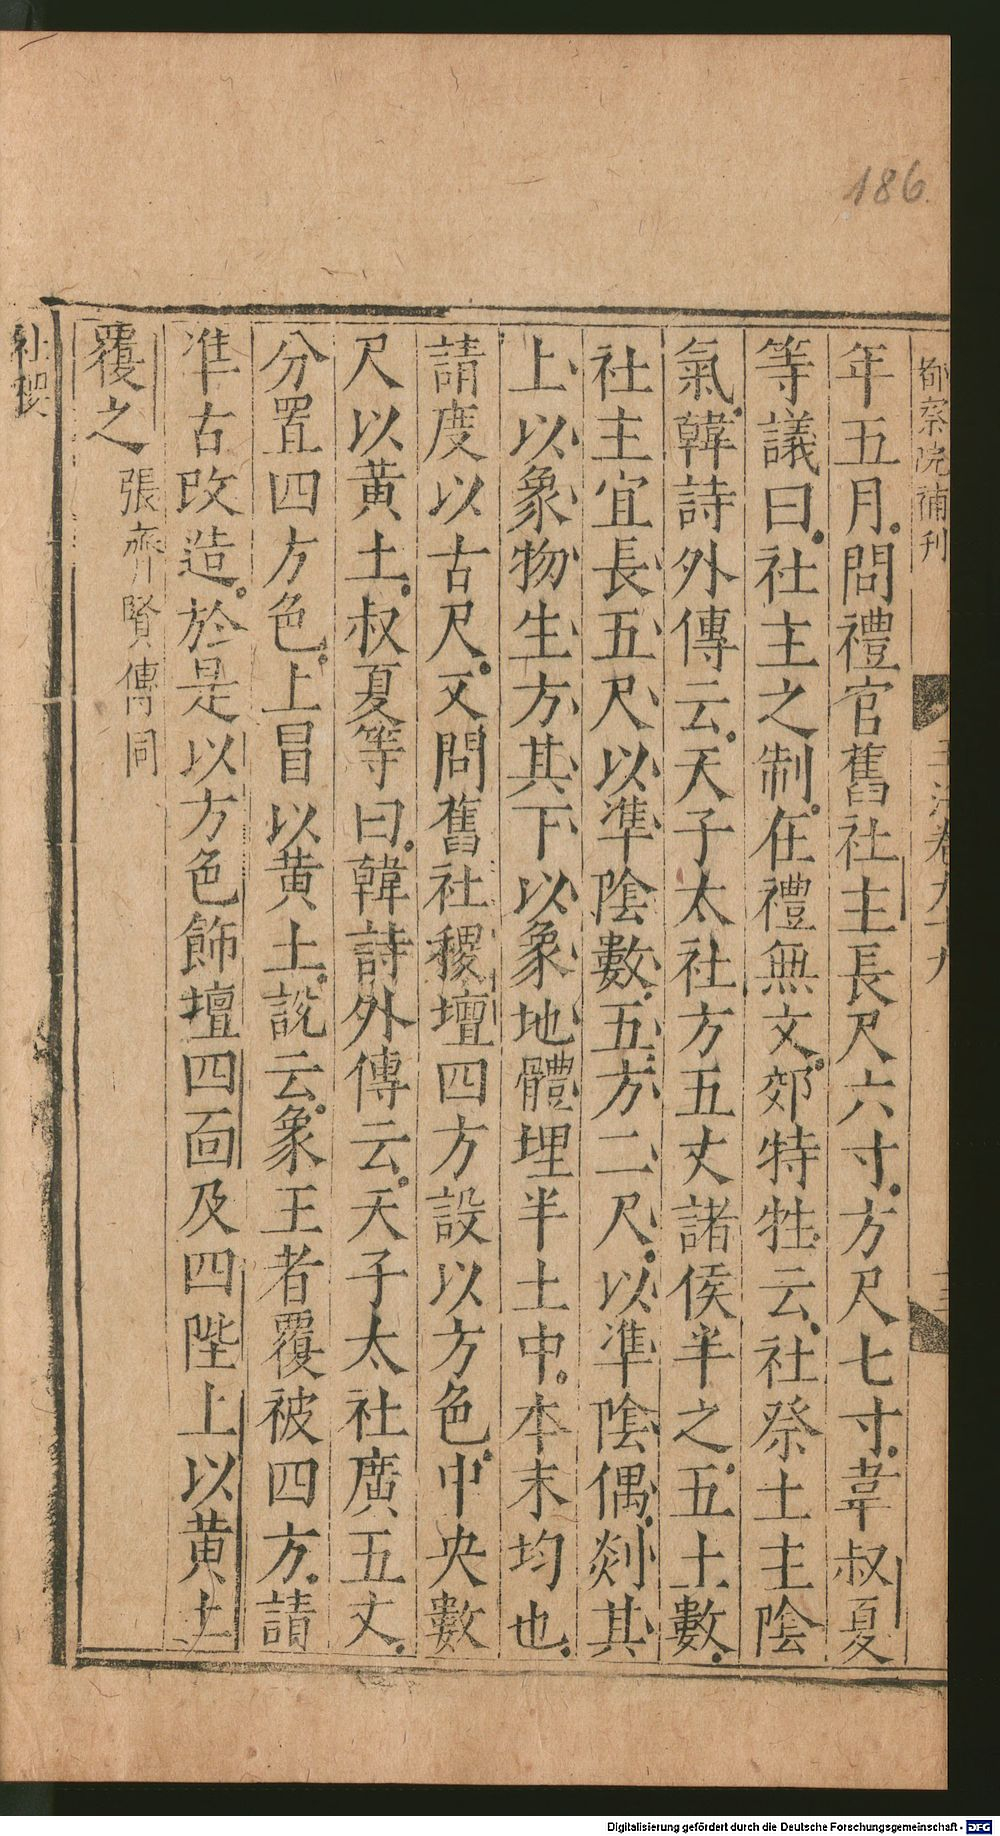 186.
都察院補刊
玉海卷九十九
年五月問禮官舊社主長尺六寸方尺七寸韋叔夏
等議曰社主之制在禮無文郊特牲云社祭土主陰
氣韓詩外傳云天子太社方五丈諸侯半之五土數
社主宜長五尺以準陰數五方二尺以準陰偶剡其
上以象物生方其下以象地體埋半土中本末均也
請度以古尺又問舊社稷壇四方設以方色中央數
尺以黃土叔夏等曰韓詩外傳云天子太社廣五丈
分置四方色上冒以黃土說云象王者覆被四方請
准古改造於是以方色飾壇四面及四陛上以黃土
覆之張齊賢傳同
社稷
Digitalisierung gefördert durch die Deutsche Forschungsgemeinschaft - DFG